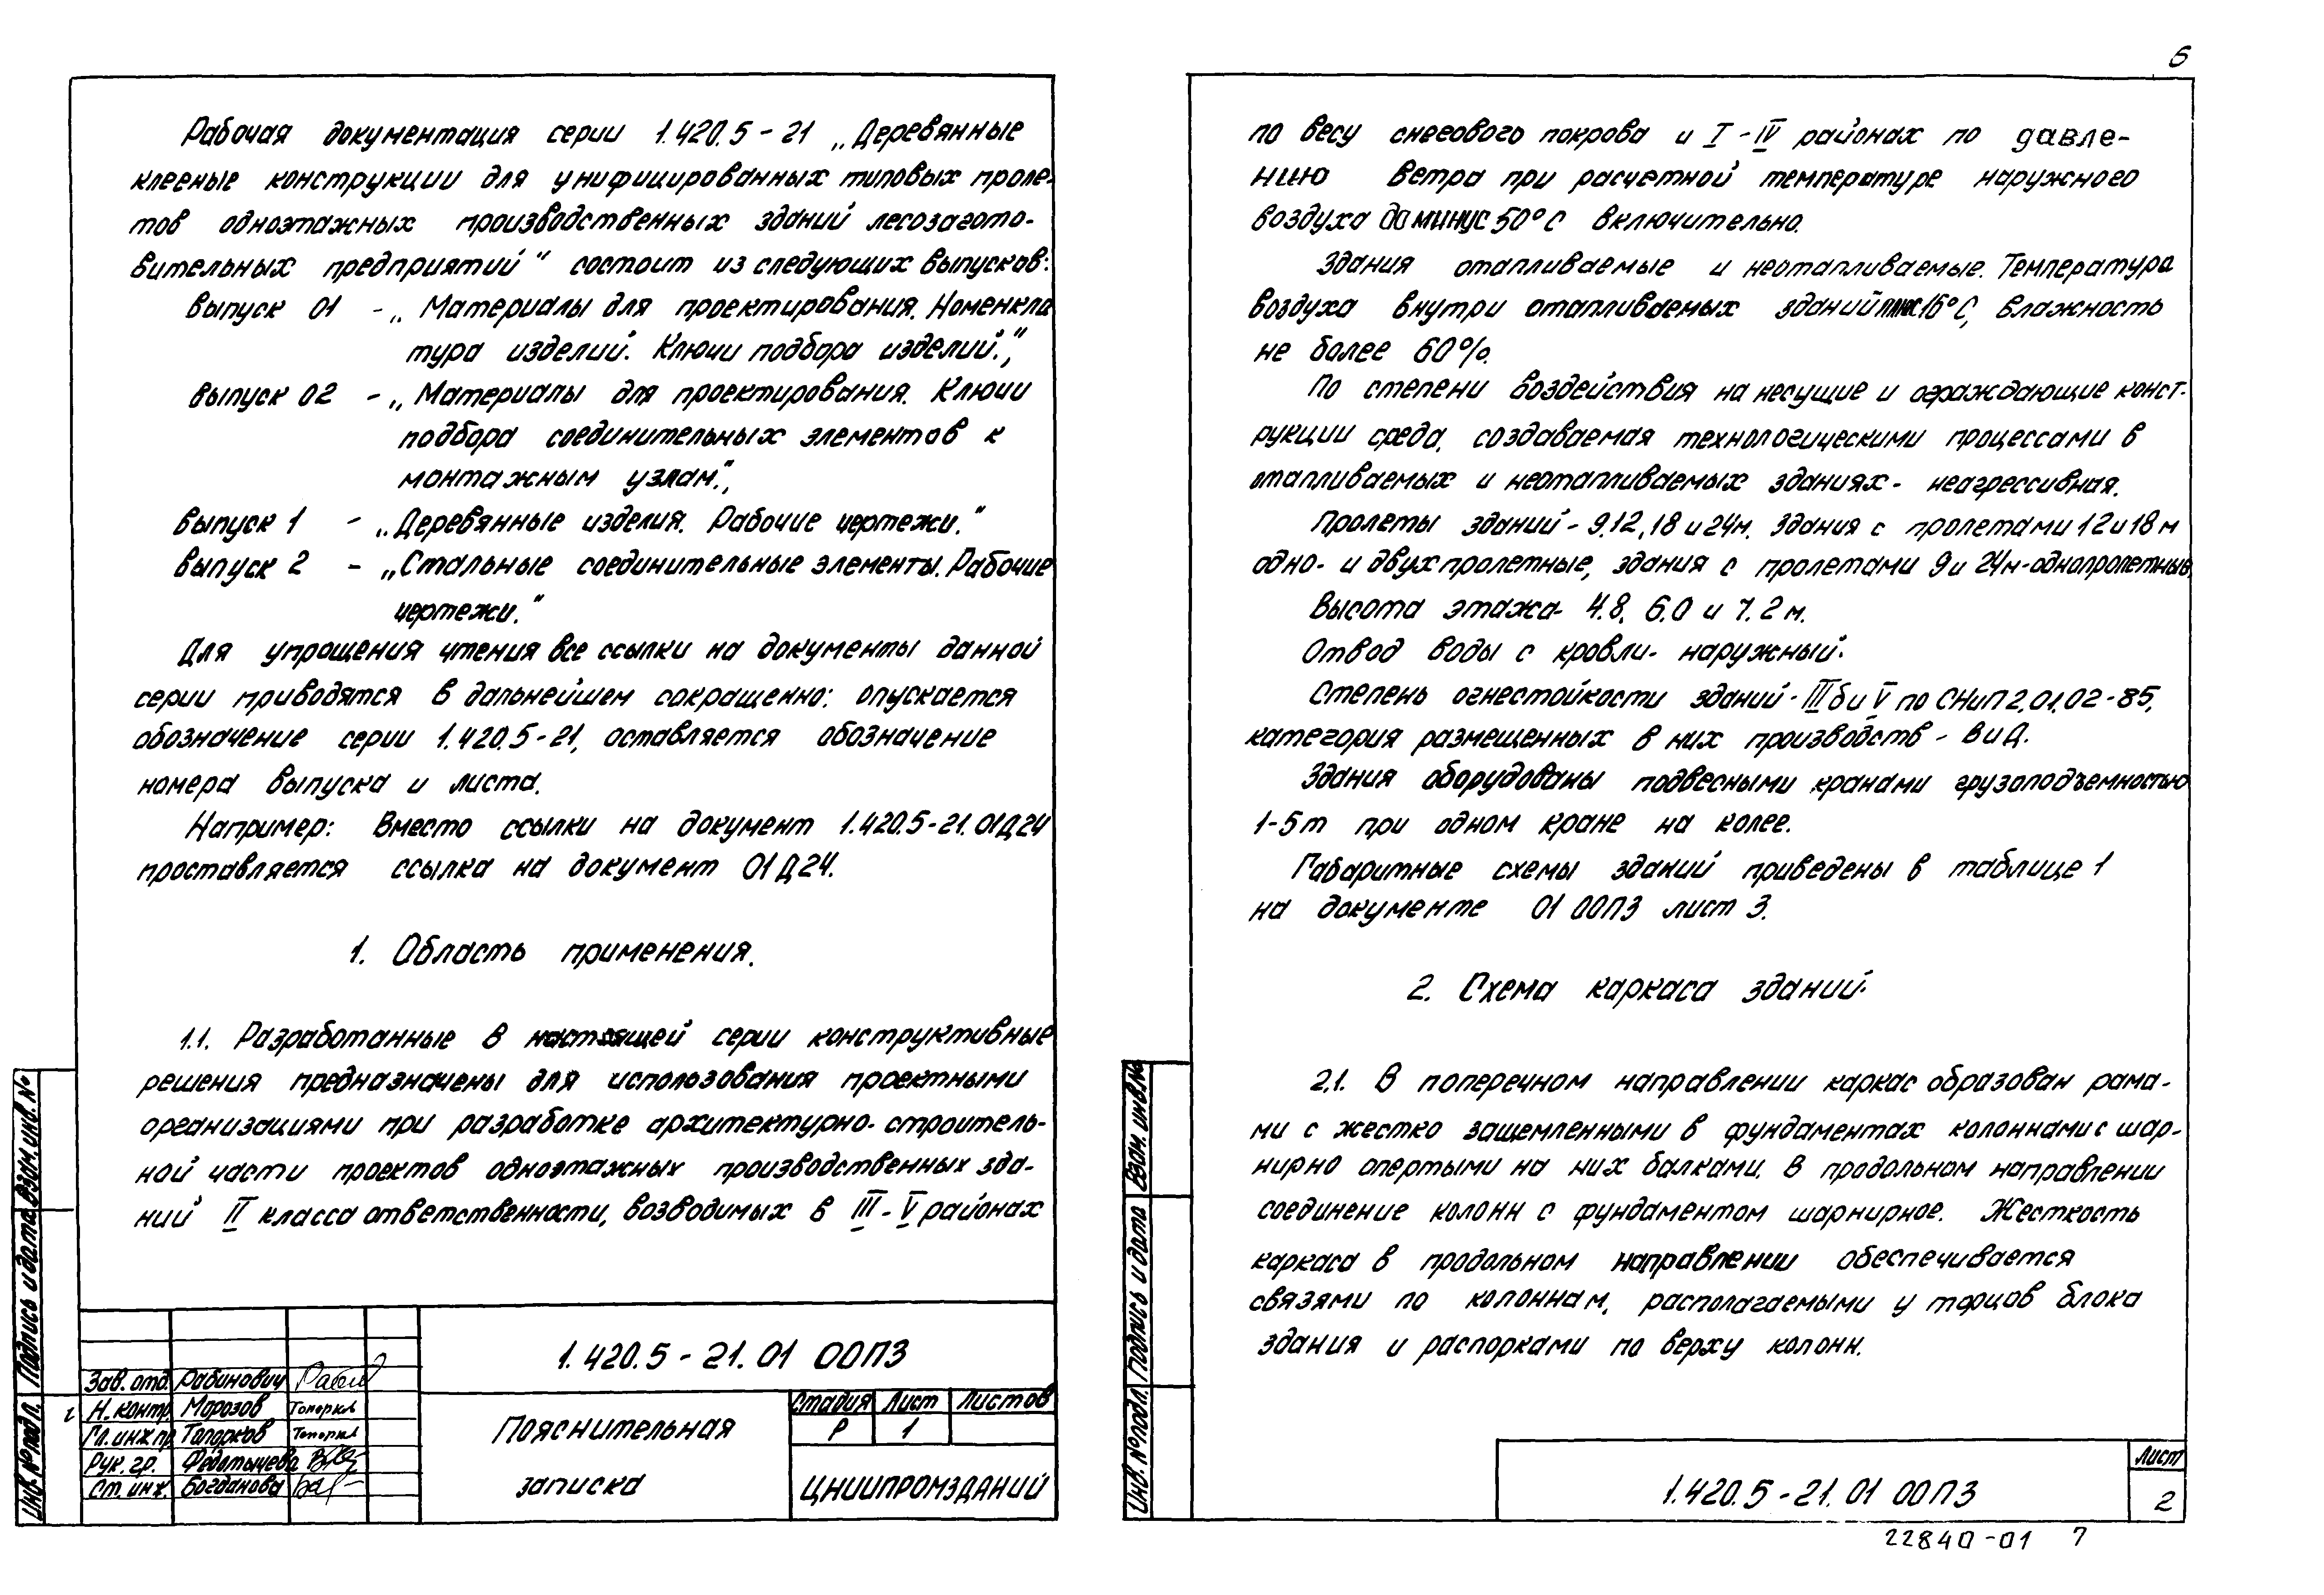 Рабочая документация серии 1.420.5-21 „Деревянные
клееные конструкции для унифицированных типовых проле-
тов одноэтажных производственных зданий лесозагото-
вительных предприятий" состоит из следующих выпусков:
Выпуск 01 - „Материалы для проектирования. Номенкла
тура изделий. Ключи подбора изделий.",
Выпуск 02 - „Материалы для проектирования. Ключи
подбора соединительных элементов к
монтажным узлам.",
Выпуск 1 - „Деревянные изделия. Рабочие чертежи."
Выпуск 2 - „Стальные соединительные элементы. Рабочие
чертежи."
Для упрощения чтения все ссылки на документы данной
серии приводятся в дальнейшем сокращенно: опускается
обозначение серии 1.420.5-21, оставляется обозначение
номера выпуска и листа.
Например: Вместо ссылки на документ 1.420.5-21.01Д24
проставляется ссылка на документ 01Д24.
1. Область применения.
1.1. Разработанные в настоящей серии конструктивные
решения предназначены для использования проектными
организациями при разработке архитектурно-строитель-
ной части проектов одноэтажных производственных зда-
ний II класса ответственности, возводимых в III-V районах
1.420.5-21.01 00ПЗ
Зав. отд. Рабинович
Н. контр. Морозов
Гл. инж. пр. Топорков
Рук. гр. Федотычева
Ст. инж. Богданова
Пояснительная
записка
Стадия Лист Листов
Р 1
ЦНИИПРОМЗДАНИЙ
Инв. № подл. Подпись и дата Взам. инв. №
6
по весу снегового покрова и I-IV районах по давле-
нию ветра при расчетной температуре наружного
воздуха до минус 50°С включительно.
Здания отапливаемые и неотапливаемые. Температура
воздуха внутри отапливаемых зданий плюс 16°С, влажность
не более 60%.
По степени воздействия на несущие и ограждающие конст-
рукции среда, создаваемая технологическими процессами в
отапливаемых и неотапливаемых зданиях - неагрессивная.
Пролеты зданий - 9,12,18 и 24м. Здания с пролетами 12 и 18 м
одно- и двухпролетные, здания с пролетами 9 и 24м-однопролетные.
Высота этажа- 4.8, 6.0 и 7.2 м.
Отвод воды с кровли- наружный.
Степень огнестойкости зданий - III б и V по СНиП 2.01.02-85,
категория размещенных в них производств - В и Д.
Здания оборудованы подвесными кранами грузоподъемностью
1-5т при одном кране на колее.
Габаритные схемы зданий приведены в таблице 1
на документе 01 00ПЗ лист 3.
2. Схема каркаса зданий.
2.1. В поперечном направлении каркас образован рама-
ми с жестко защемленными в фундаментах колоннами с шар-
нирно опертыми на них балками. В продольном направлении
соединение колонн с фундаментом шарнирное. Жесткость
каркаса в продольном направлении обеспечивается
связями по колоннам, располагаемыми у торцов блока
здания и распорками по верху колонн.
Инв. № подл. Подпись и дата Взам. инв. №
1.420.5-21.01 00ПЗ
Лист
2
22840-01 7